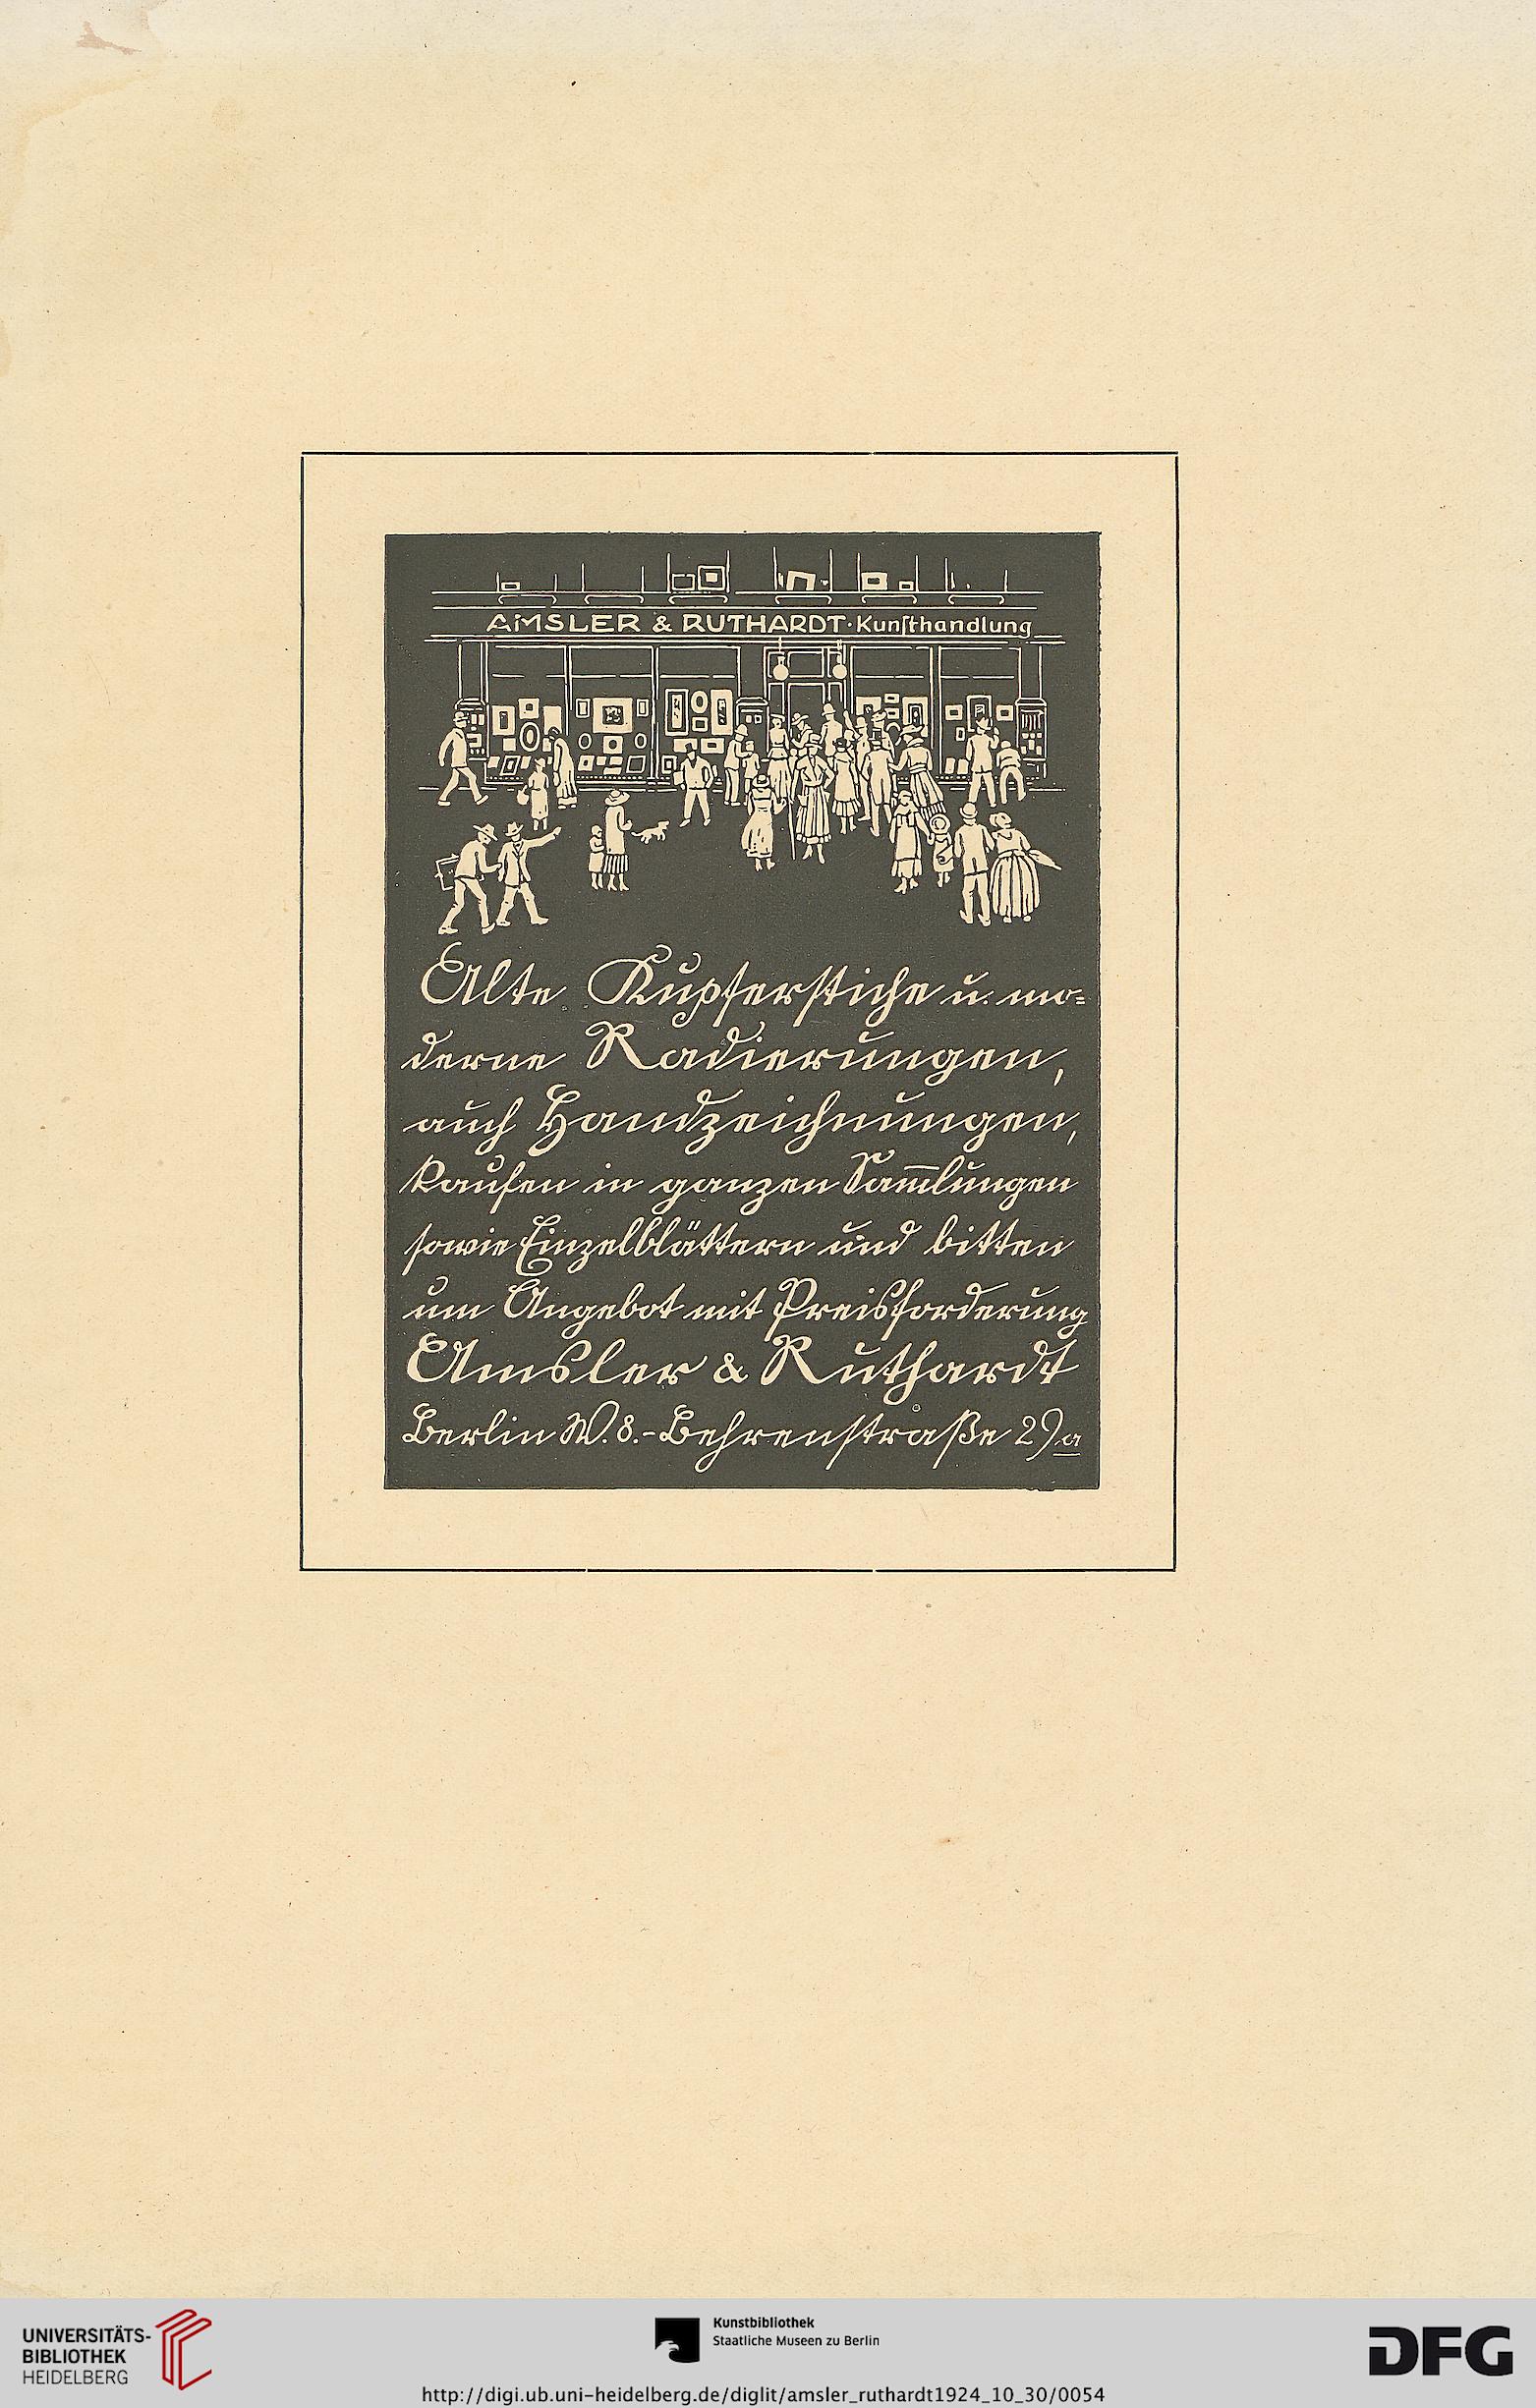 AMSLER & RUTHARDT·Kunſthandlung
Alte Kupferstiche u. mo=
derne Radierungen,
auch Handzeichnungen,
kaufen in ganzen Sam̅lungen
sowie Einzelblättern und bitten
um Angebot mit Preisforderung
Amsler & Ruthardt
Berlin W. 8.-Behrenstraße 29a
UNIVERSITÄTS-
BIBLIOTHEK
HEIDELBERG
Kunstbibliothek
Staatliche Museen zu Berlin
DFG
http://digi.ub.uni-heidelberg.de/diglit/amsler_ruthardt1924_10_30/0054